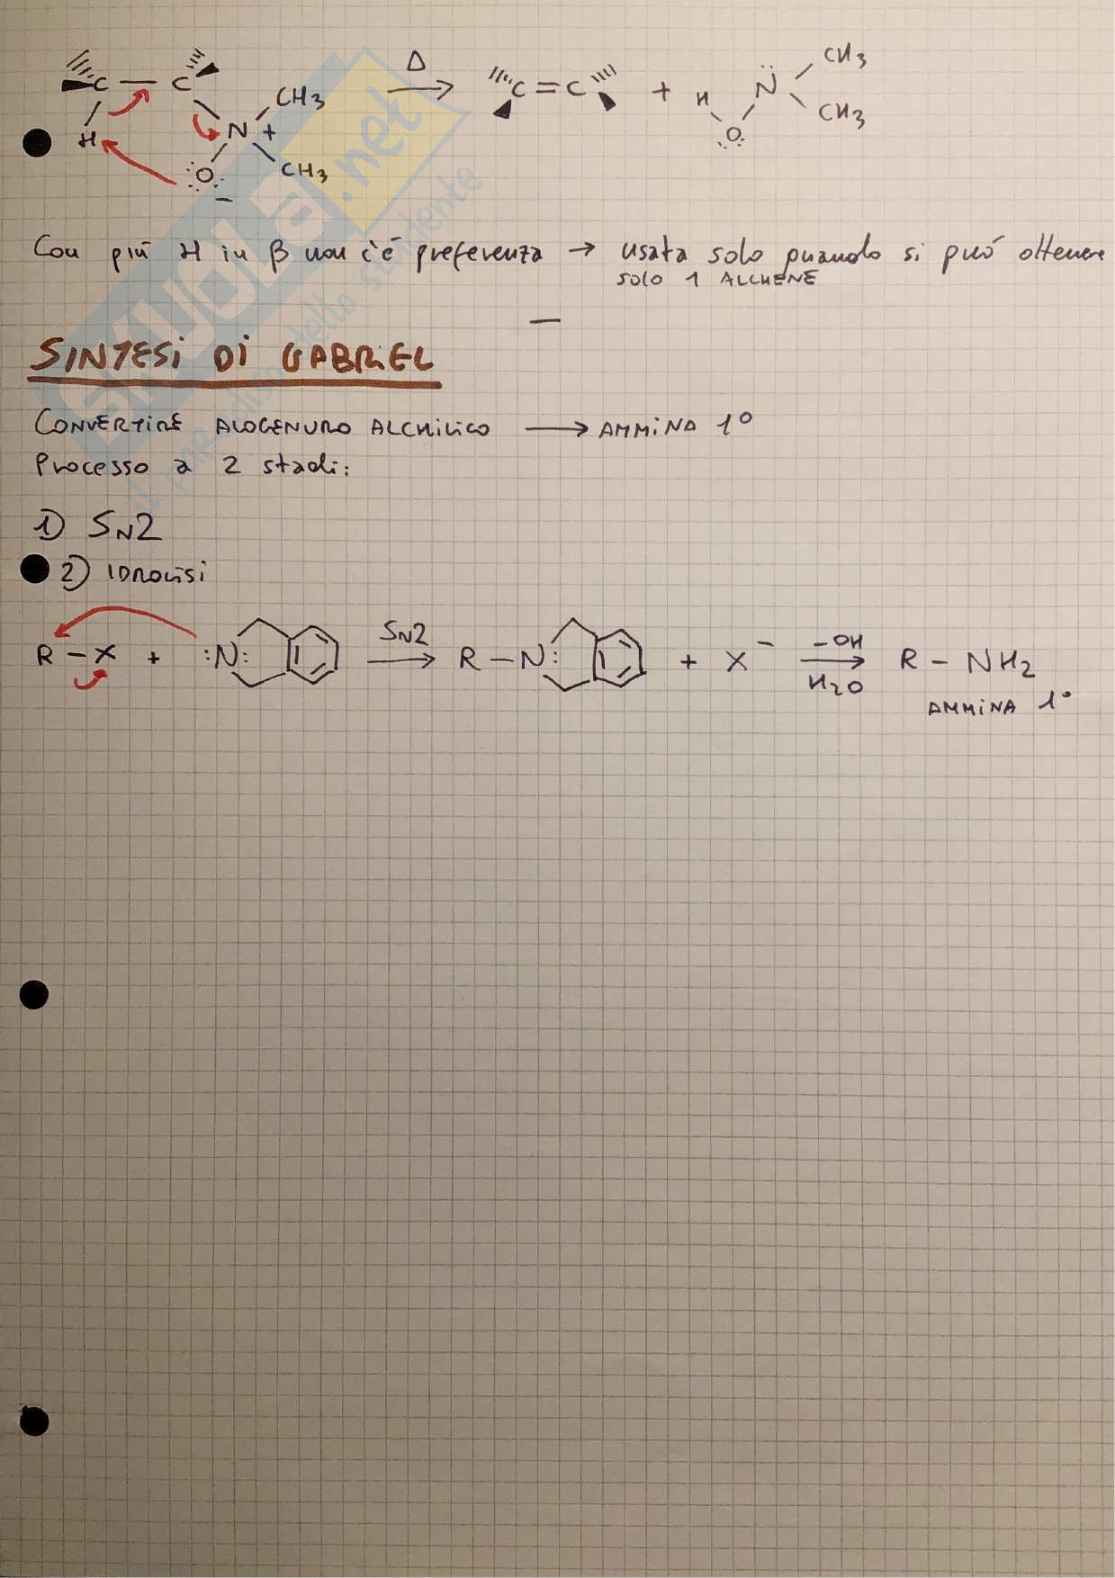 C — C
N + CH3
H
CH3
:O:
−
Δ
C = C + H
N
CH3
CH3
:O:
Con più H in β non c'è preferenza → usata solo quando si può ottenere
SOLO 1 ALCHENE
—
SINTESI DI GABRIEL
CONVERTIRE ALOGENURO ALCHILICO → AMMINA 1°
Processo a 2 stadi:
1) SN2
2) IDROLISI
R – X + :N: SN2 R – N: + X⁻ -OH H2O R – NH2
AMMINA 1°
SKUOLA.net